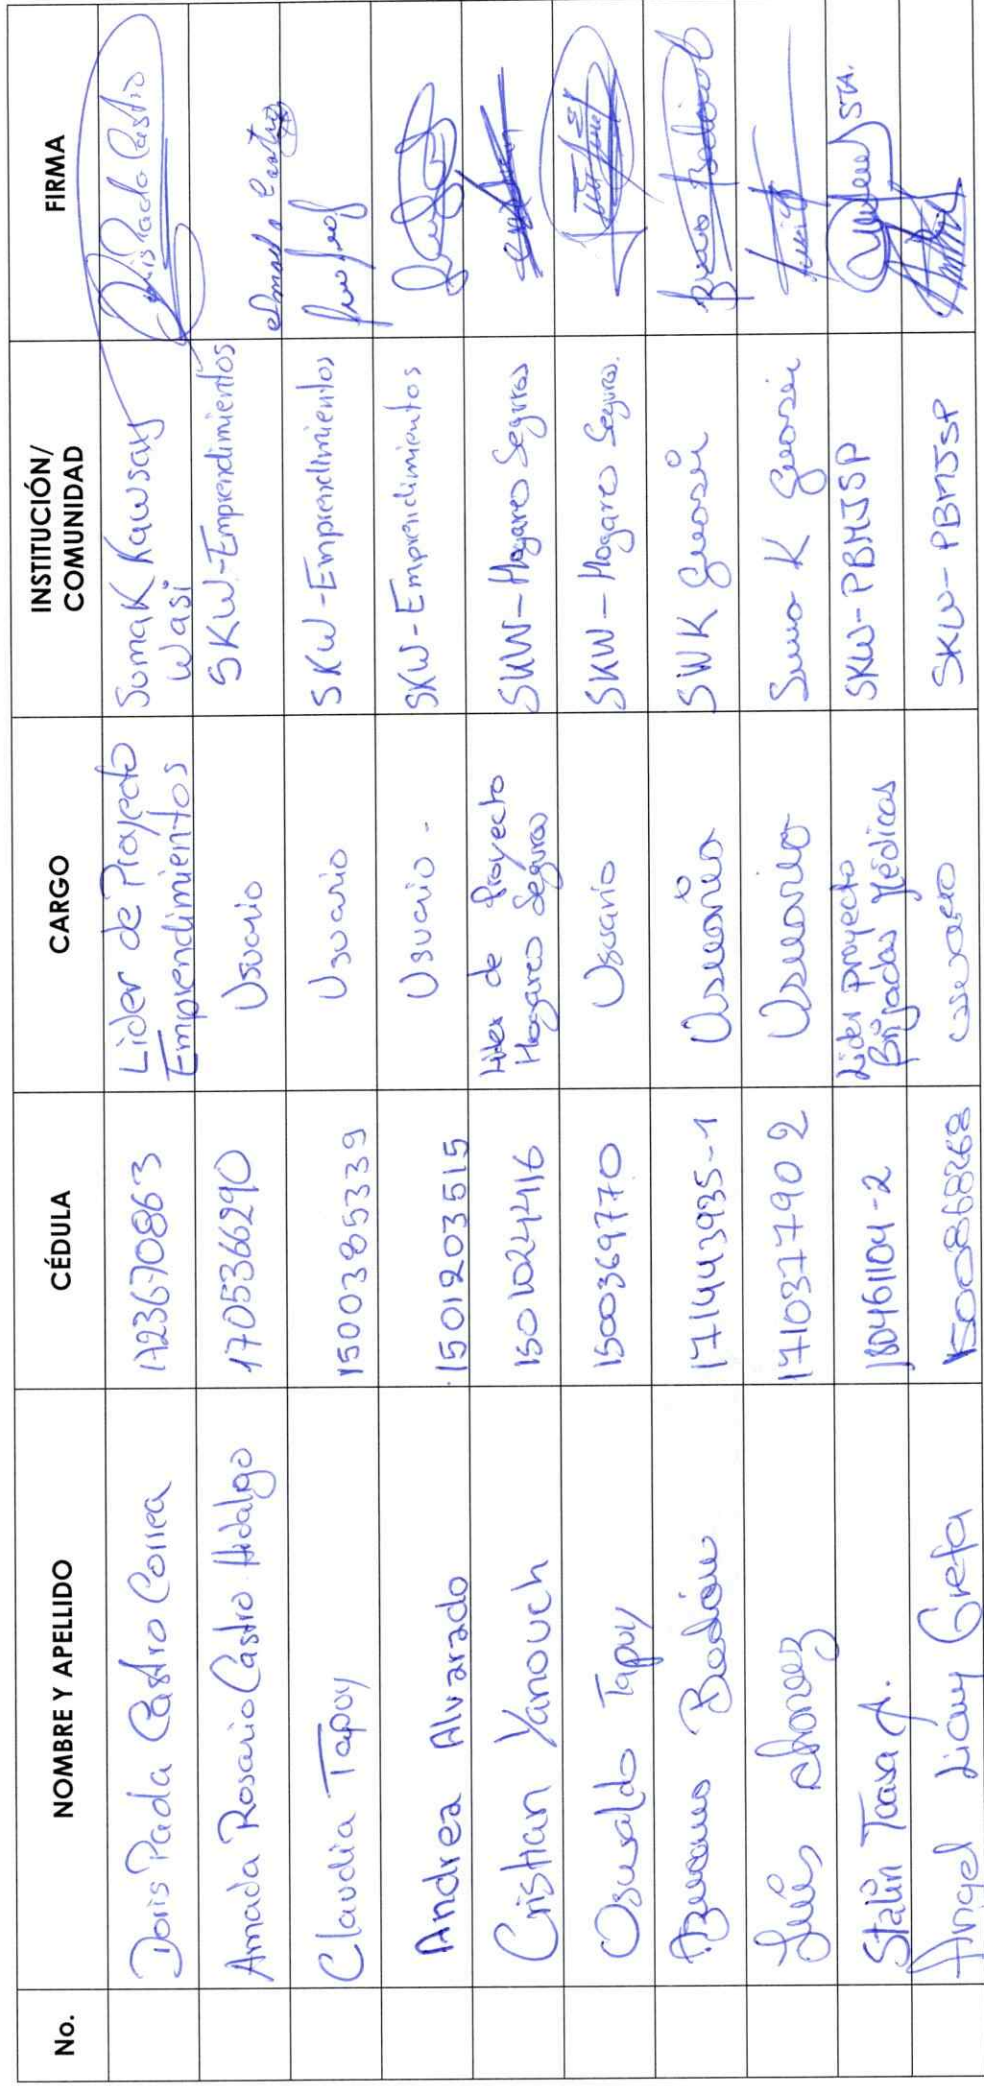 No. NOMBRE Y APELLIDO CÉDULA CARGO INSTITUCIÓN/ COMUNIDAD FIRMA
Doris Paola Castro Correa 1723670863 Lider de Proyecto Emprendimientos Sumak Kawsay Wasi
Amada Rosario Castro Hidalgo 1705366290 Usuario SKW-Emprendimientos
Claudia Tapuy 1500385339 Usuario SKW-Emprendimientos
Andrea Alvarado 1501203515 Usuario - SKW-Emprendimientos
Cristian Yanouch 1501024416 Lider de Proyecto Hogares Seguros SKW-Hogares Seguros
Oswaldo Tapuy 1500369770 Usuario SKW-Hogares Seguros.
Bedón 171443935-1 Usuario SWK
Luis 171037790 2 Usuario Sumo K
Stalin Toasa A. 180461104-2 Lider Proyecto Brigadas Médicas SKW-PBMJSP STA.
Angel Grefa 1500868268 usuario SKW-PBMJSP